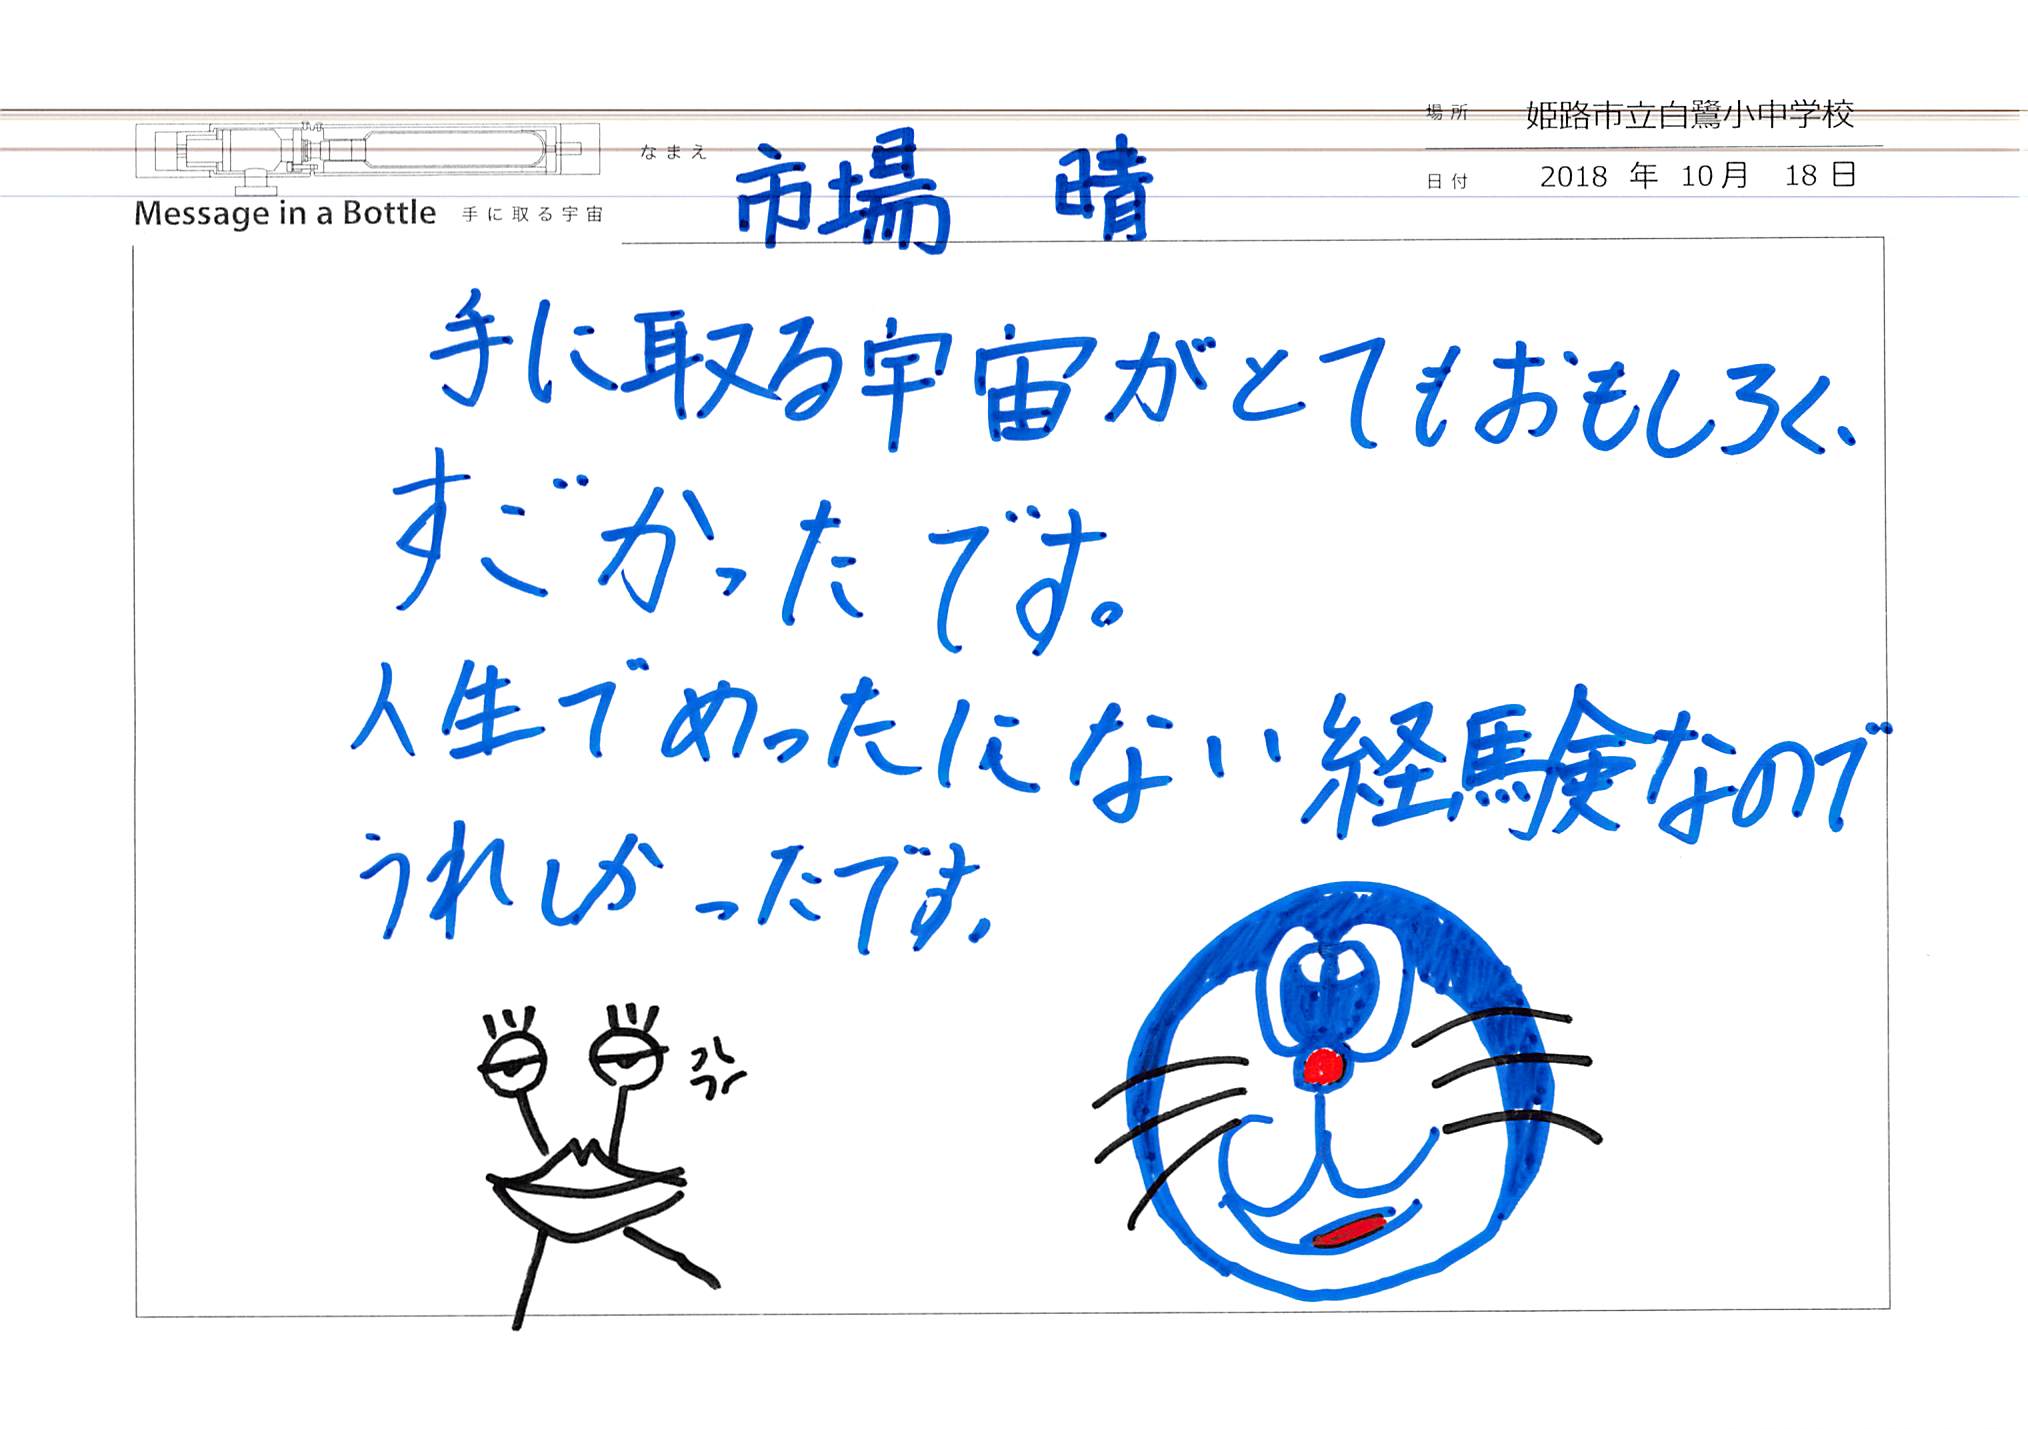 場所 姫路市立白鷺小中学校
なまえ 市場 晴
日付 2018 年 10 月 18 日
Message in a Bottle 手に取る宇宙
手に取る宇宙がとてもおもしろく、
すごかったです。
人生でめったにない経験なので
うれしかったです、